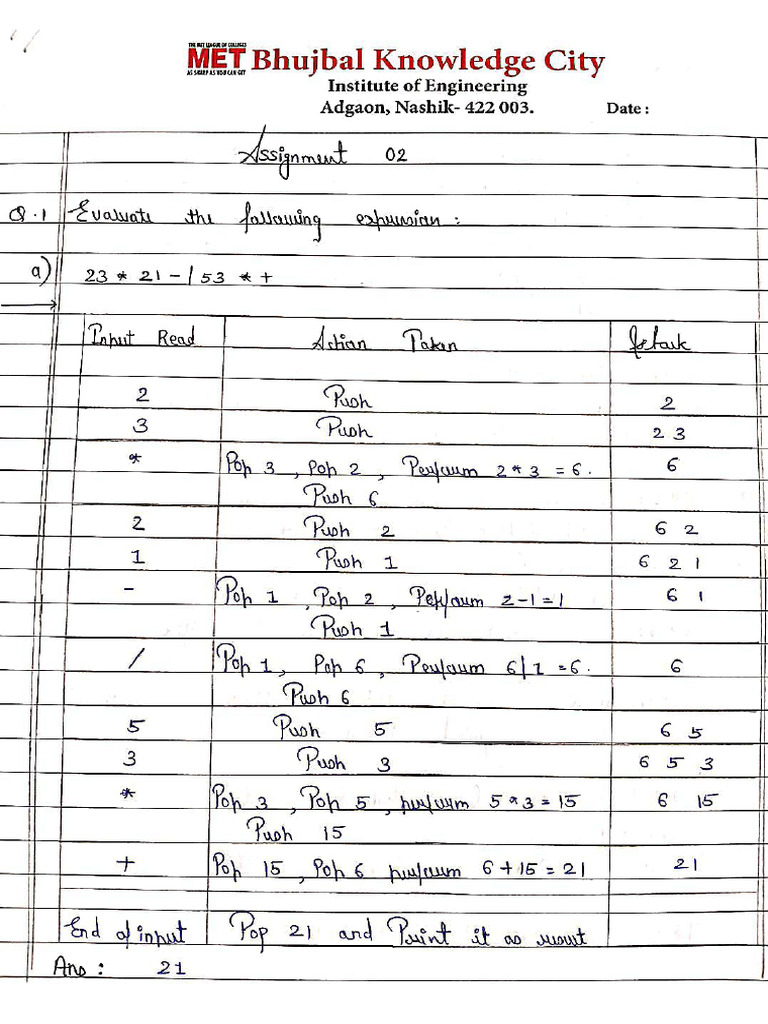 THE MET LEAGUE OF COLLEGES
MET Bhujbal Knowledge City
AS SHARP AS YOU CAN GET
Institute of Engineering
Adgaon, Nashik- 422 003. Date :
Assignment 02
Q.1 Evaluate the following expression :
a) 23 * 21 - / 53 * +
Input Read Action Taken Stack
2 Push 2
3 Push 2 3
* Pop 3 , Pop 2 , Perform 2 * 3 = 6. 6
Push 6
2 Push 2 6 2
1 Push 1 6 2 1
- Pop 1 , Pop 2 , Perform 2-1=1 6 1
Push 1
/ Pop 1, Pop 6 , Perform 6/1 =6. 6
Push 6
5 Push 5 6 5
3 Push 3 6 5 3
* Pop 3 , Pop 5 , perform 5 * 3 = 15 6 15
Push 15
+ Pop 15 , Pop 6 perform 6 + 15 = 21 21
End of input Pop 21 and Print it as result
Ans : 21